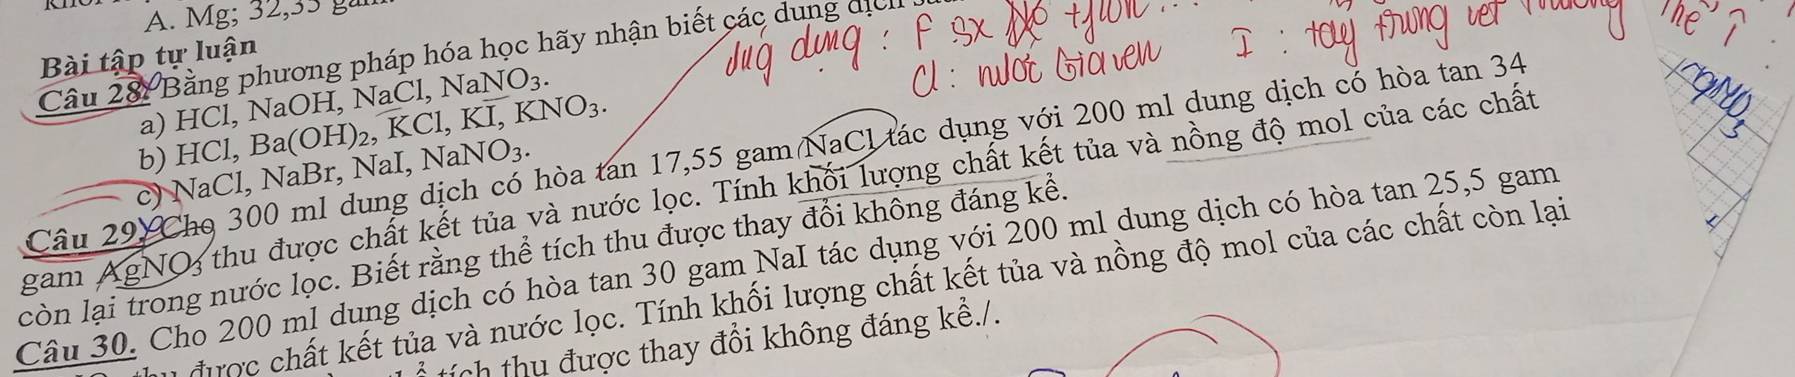 A. Mg; 32,35
Bài tập tự luận
Câu 28. Bằng phương pháp hóa học hãy nhận biết các dung dịch
a) HCl, NaOH, NaCl, NaNO₃.
b) HCl, Ba(OH)₂, KCl, KI, KNO₃.
c) NaCl, NaBr, NaI, NaNO₃.
Câu 29. Cho 300 ml dung dịch có hòa tan 17,55 gam NaCl tác dụng với 200 ml dung dịch có hòa tan 34
gam AgNO₃ thu được chất kết tủa và nước lọc. Tính khối lượng chất kết tủa và nồng độ mol của các chất
còn lại trong nước lọc. Biết rằng thể tích thu được thay đổi không đáng kể.
Câu 30. Cho 200 ml dung dịch có hòa tan 30 gam NaI tác dụng với 200 ml dung dịch có hòa tan 25,5 gam
được chất kết tủa và nước lọc. Tính khối lượng chất kết tủa và nồng độ mol của các chất còn lại
tích thu được thay đổi không đáng kể./.
dụng : F sx
Cl : nước Giaven
I : tẩy trùng vết